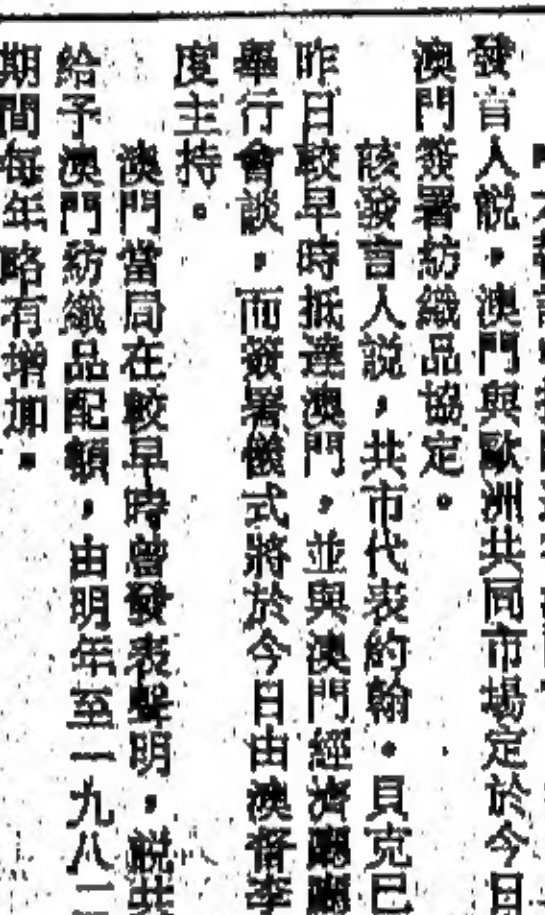 發言人說，澳門與歐洲共同市場定於今日
澳門簽署紡織品協定。
該發言人說，共市代表約翰・貝克已
昨日較早時抵達澳門，並與澳門經濟廳廳
舉行會談，而簽署儀式將於今日由澳督李
度主持。
澳門當局在較早時曾發表聲明，說共
給予澳門紡織品配額，由明年至一九八二
期間每年略有增加。